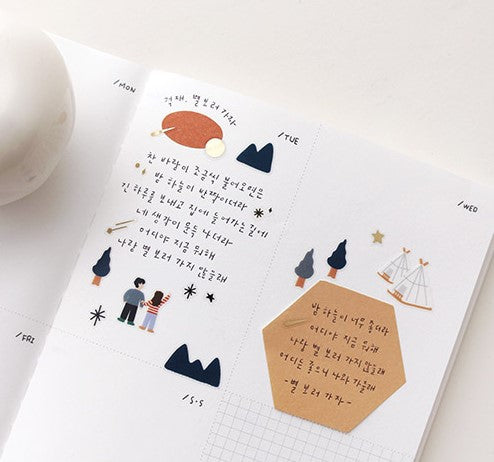 /MON
적재 - 별 보러 가자
/TUE
찬 바람이 조금씩 불어오면은
밤 하늘이 반짝이더라
긴 하루를 보내고 집에 들어가는 길에
네 생각이 문득 나더라
어디야 지금 뭐해
나랑 별 보러 가지 않을래
/WED
밤 하늘이 너무 좋더라
어디야 지금 뭐해
나랑 별 보러 가지 않을래
어디든 좋으니 나와 가줄래
- 별 보러 가자 -
/FRI
/S.S